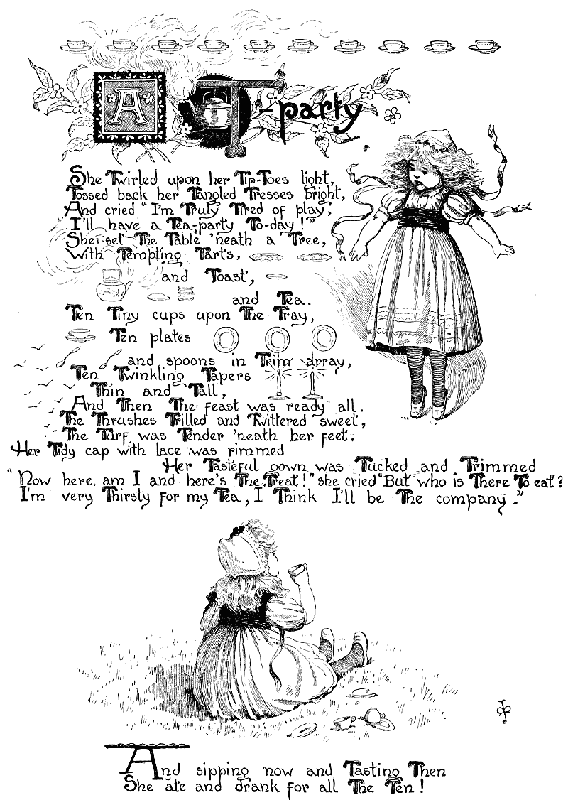 A T-party
She Twirled upon her Tip-Toes light,
Tossed back her Tangled Tresses bright,
And cried "I'm Truly Tired of play;
I'll have a Tea-party To-day!"
She set The Table 'neath a Tree,
With Tempting Tarts,
and Toast,
and Tea.
Ten Tiny cups upon The Tray,
Ten plates
and spoons in Trim array,
Ten Twinkling Tapers
Thin and Tall,
And Then The feast was ready all.
The Thrushes Trilled and Twittered sweet,
The Turf was Tender 'neath her feet.
Her Tidy cap with lace was rimmed
Her Tasteful gown was Tucked and Trimmed
"Now here am I and here's The Treat!" she cried "But who is There To eat?
I'm very Thirsty for my Tea, I Think I'll be The company."
And sipping now and Tasting Then
She ate and drank for all The Ten!